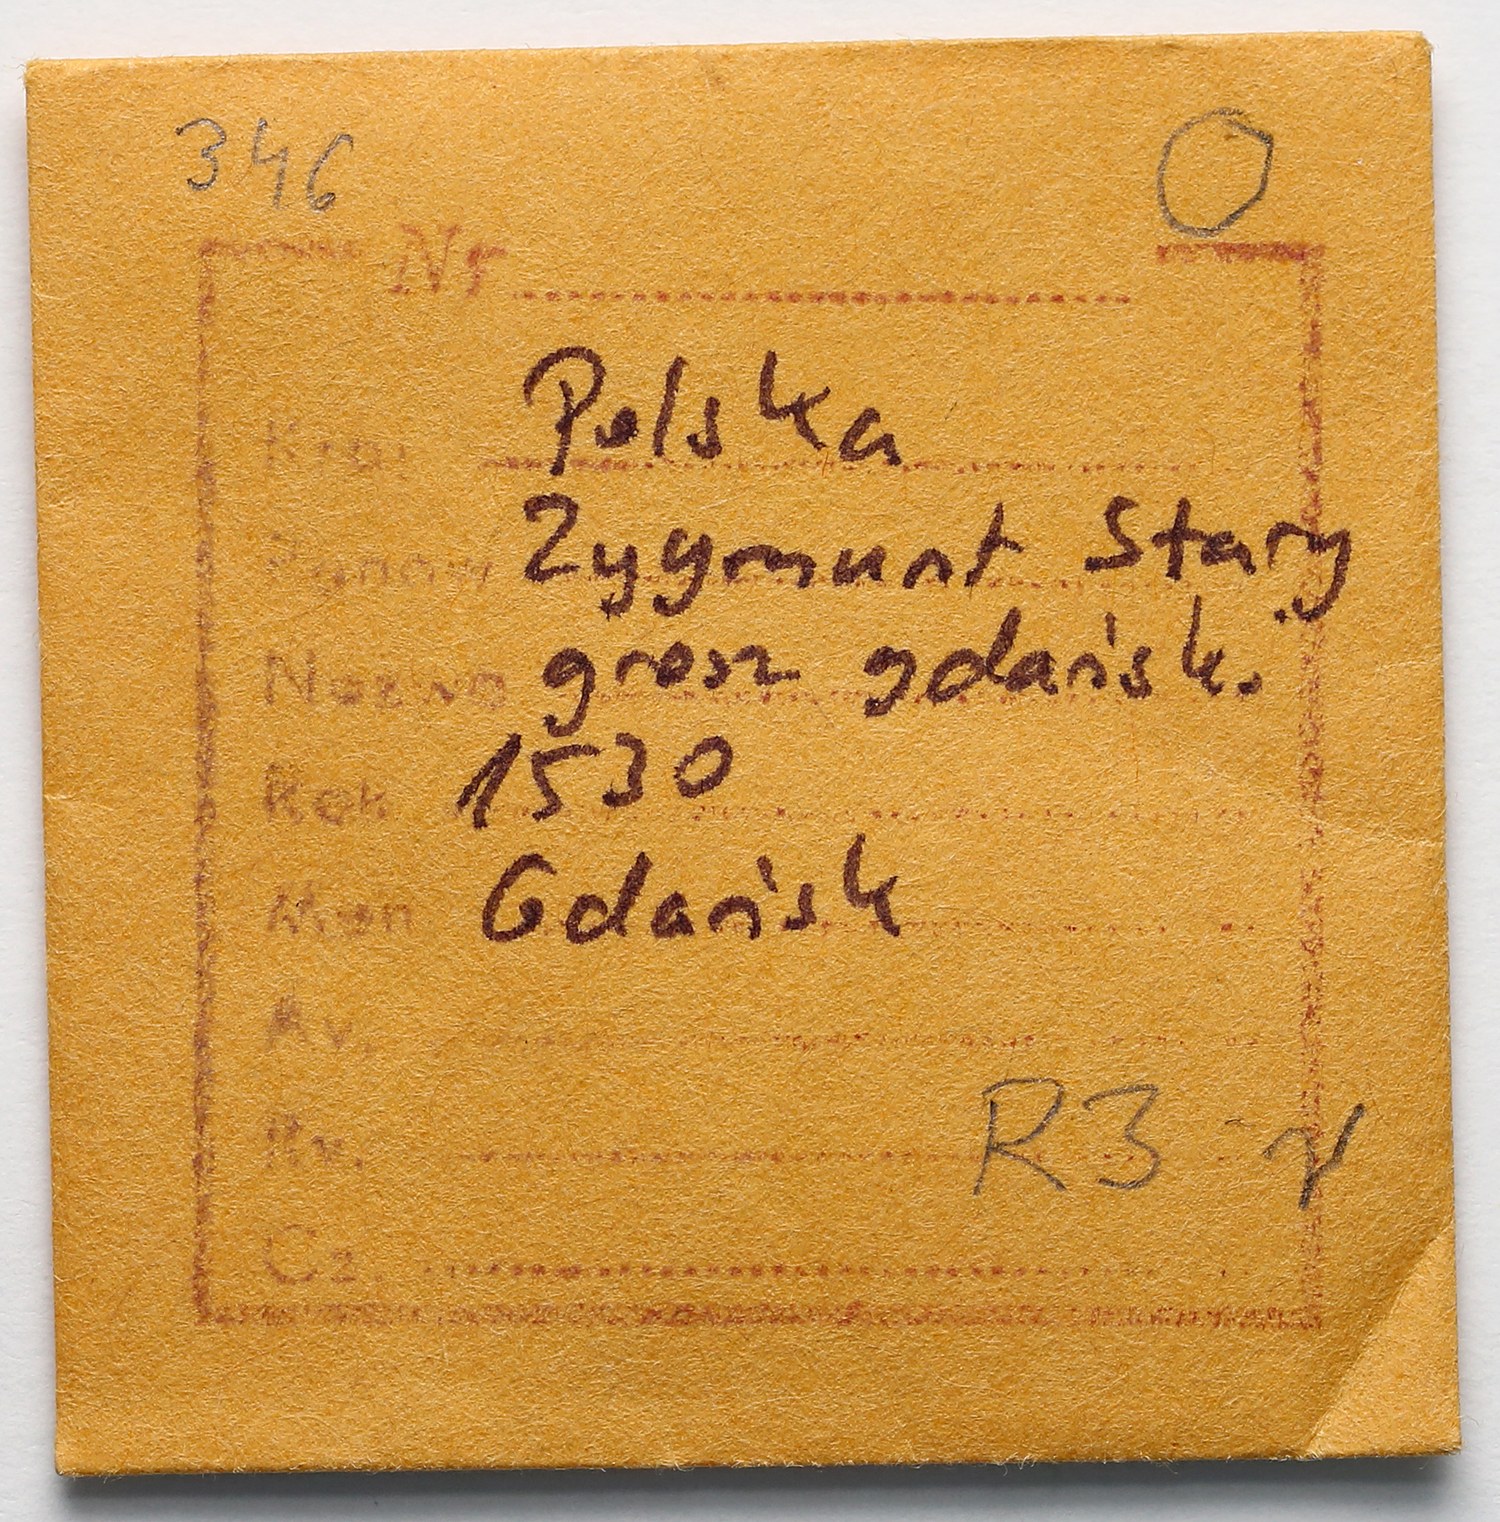 346 O
Nr
Kraj Polska
Panow. Zygmunt Stary
Nazwa grosz gdańsk.
Rok 1530
Men Gdańsk
Av.
Rv.
Cz.
R3